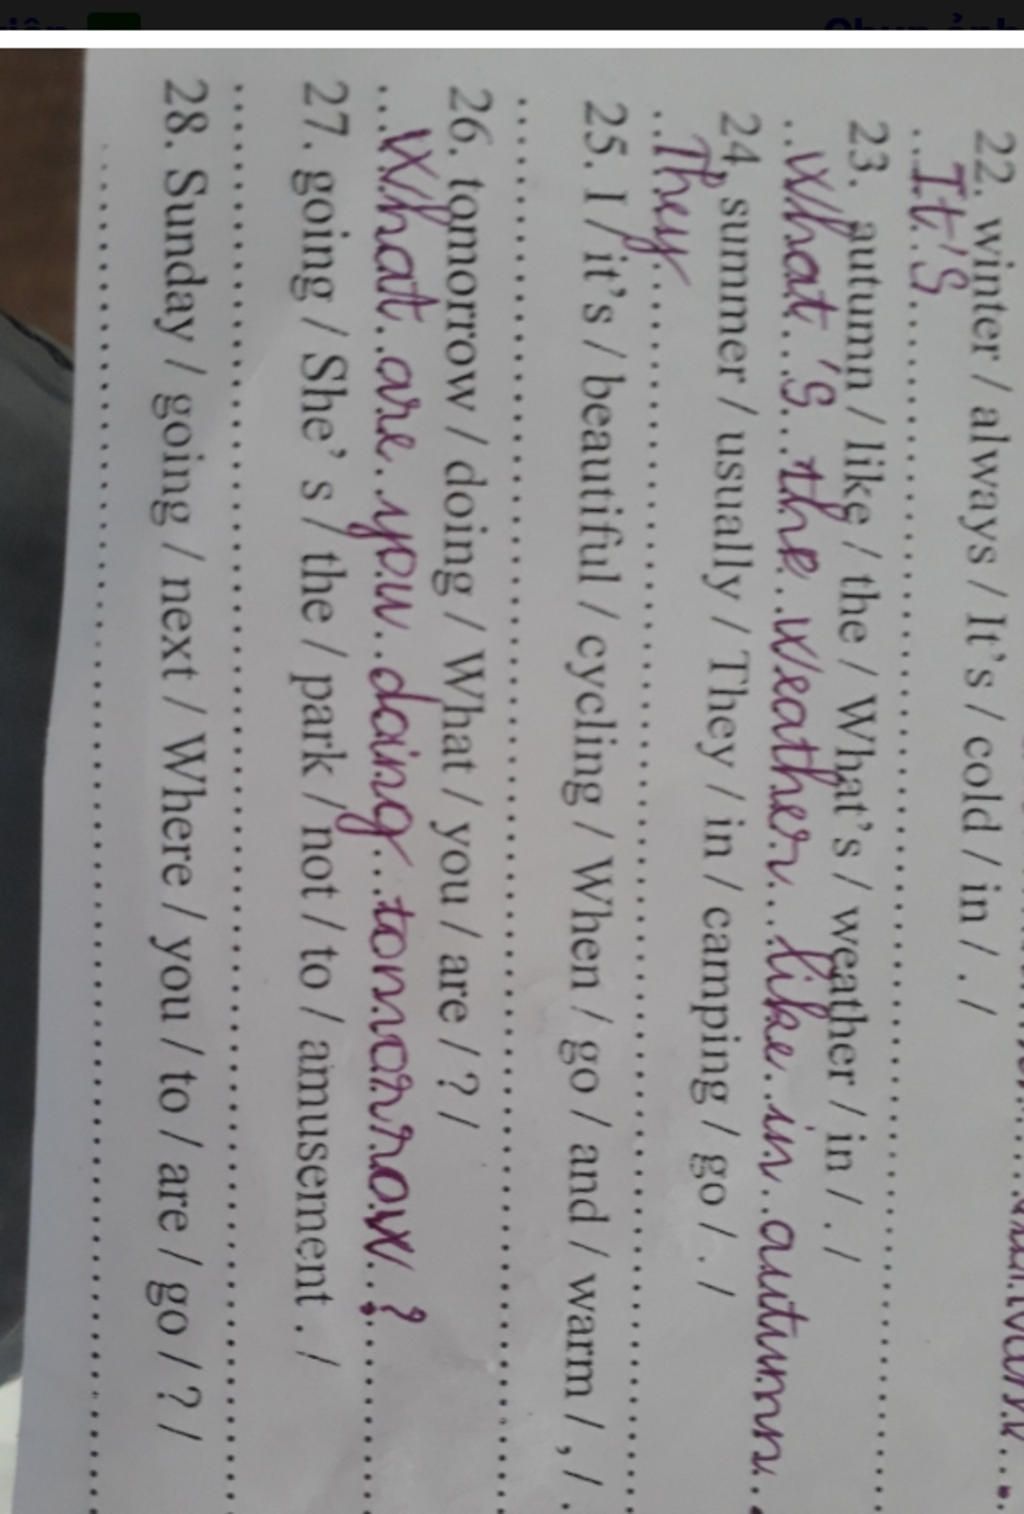 22. winter / always / It's / cold / in / . /
It'S
23. autumn / like / the / What's / weather / in / . /
What'S the weather like in autumn.
24, summer / usually / They / in / camping / go / . /
They
25. I / it's / beautiful / cycling / When / go / and / warm / , / .
26. tomorrow / doing / What / you / are / ? /
What are you doing tomorrow ?
27. going / She' s / the / park / not / to / amusement . /
28. Sunday / going / next / Where / you / to / are / go / ? /